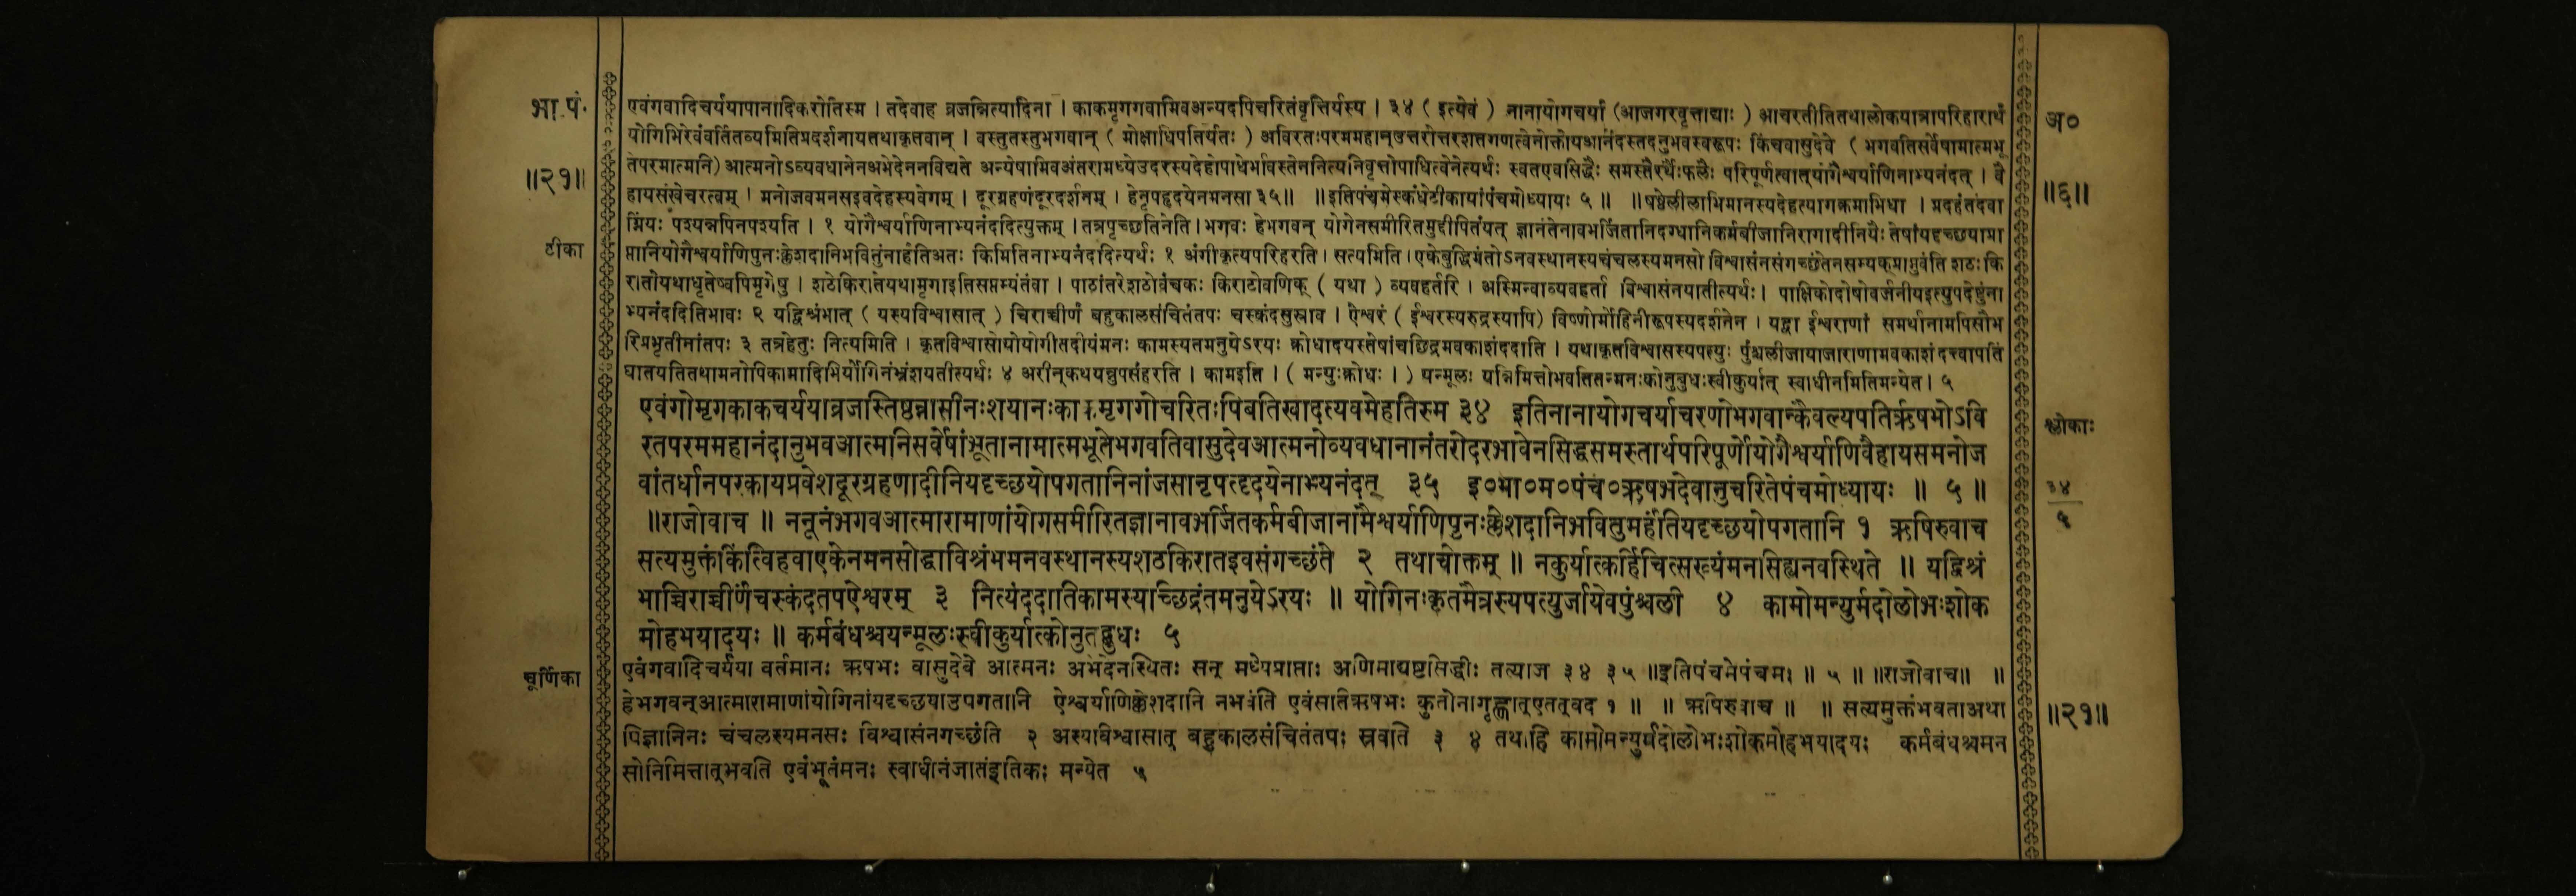 भा.पं.
॥२१॥
टीका
एवंगवादिचर्ययापानादिकरोतिस्म । तदेवाह व्रजन्नित्यादिना । काकमृगगवामिवअन्यदपिचरितंवृत्तिर्यस्य । ३४ ( इत्येवं ) नानायोगचर्यां (आजगरवृत्ताद्याः ) आचरतीतितथालोकयात्रापरिहारार्थं
योगिभिरेवंवर्तितव्यमितिप्रदर्शनायतथाकृतवान् । वस्तुतस्तुभगवान् ( मोक्षाधिपतिर्यतः ) अविरतःपरममहान्उत्तरोत्तरशतगणत्वेनोक्तोयआनंदस्तदनुभवस्वरूपः किंचवासुदेवे ( भगवतिसर्वेषामात्मभू
तेपरमात्मनि) आत्मनोऽव्यवधानेनअभेदेननविद्यते अन्येषामिवअंतरामध्येउदरस्यदेहोपाधेर्भावस्तेननित्यनिवृत्तोपाधित्वेनेत्यर्थः स्वतएवसिद्धैः समस्तैरर्थैःफलैः परिपूर्णत्वात्योगैश्वर्याणिनाभ्यनंदत् । वै
हायसंखेचरत्वम् । मनोजवमनसइवदेहस्यवेगम् । दूरग्रहणंदूरदर्शनम् । हेनृपहृदयेनमनसा ३५॥ ॥इतिपंचमेस्कंधेटीकायांपंचमोध्यायः ५ ॥ ॥षष्ठेलीलाभिमानस्यदेहत्यागक्रमाभिधा । प्रदहंतंदवा
ग्निंयः पश्यन्नपिनपश्यति । १ योगैश्वर्याणिनाभ्यनंददित्युक्तम् । तत्रपृच्छतिनेति । भगवः हेभगवन् योगेनसमीरितमुद्दीपितंयत् ज्ञानंतेनावभर्जितानिदग्धानिकर्मबीजानिरागादीनियैः तेषांयदृच्छयाप्रा
प्तानियोगैश्वर्याणिपुनःक्लेशदानिभवितुंनार्हंतिअतः किमितिनाभ्यनंददित्यर्थः १ अंगीकृत्यपरिहरति । सत्यमिति । एकेबुद्धिमंतोऽनवस्थानस्यचंचलस्यमनसो विश्वासंनसंगच्छंतेनसम्यक्प्राप्नुवंति शठः कि
रातोयथाधृतेष्वपिमृगेषु । शठेकिरातेयथामृगाइतिसप्तम्यंतंवा । पाठांतरेशठोवंचकः किराटोवणिक् ( यथा ) व्यवहर्तरि । अस्मिन्वाव्यवहर्ता विश्वासंनयातीत्यर्थः । पाक्षिकोदोषोवर्जनीयइत्युपदेष्टुंना
भ्यनंददितिभावः २ यद्विश्रंभात् ( यस्यविश्वासात् ) चिराच्चीर्णं बहुकालसंचितंतपः चस्कंदसुस्राव । ऐश्वरं ( ईश्वरस्यरुद्रस्यापि) विष्णोर्मोहिनीरूपस्यदर्शनेन । यद्वा ईश्वराणां समर्थानामपिसौभ
रिप्रभृतीनांतपः ३ तत्रहेतुः नित्यमिति । कृतविश्वासोयोयोगीतदीयंमनः कामस्यतमनुयेऽरयः क्रोधादयस्तेषांचछिद्रमवकाशंददाति । यथाकृतविश्वासस्यपत्युः पुंश्चलीजायाजाराणामवकाशं दत्त्वापतिं
घातयतितथामनोपिकामादिभिर्योगिनंभ्रंशयतीत्यर्थः ४ अरीन्कथयन्नुपसंहरति । कामइति । ( मन्युःक्रोधः । ) यन्मूलः यन्निमित्तोभवतितन्मनःकोनुबुधःस्वीकुर्यात् स्वाधीनमितिमन्येत । ५
एवंगोमृगकाकचर्ययाव्रजंस्तिष्ठन्नासीनःशयानःकाकमृगगोचरितःपिबतिखादत्यवमेहतिस्म ३४ इतिनानायोगचर्याचरणोभगवान्कैवल्यपतिर्ऋषभोऽवि
रतपरममहानंदानुभवआत्मनिसर्वेषांभूतानामात्मभूतेभगवतिवासुदेवआत्मनोव्यवधानानंतरोदरभावेनसिद्धसमस्तार्थपरिपूर्णोयोगैश्वर्याणिवैहायसमनोज
वांतर्धानपरकायप्रवेशदूरग्रहणादीनियदृच्छयोपगतानिनांजसानृपत्दृदयेनाभ्यनंदत् ३५ इ०भा०म०पंच०ऋषभदेवानुचरितेपंचमोध्यायः ॥ ५ ॥
॥राजोवाच ॥ ननूनंभगवआत्मारामाणांयोगसमीरितज्ञानावभर्जितकर्मबीजानामैश्वर्याणिपुनःक्लेशदानिभवितुमर्हंतियदृच्छयोपगतानि १ ऋषिरुवाच
सत्यमुक्तंकिंत्विहवाएकेनमनसोद्धाविश्रंभमनवस्थानस्यशठकिरातइवसंगच्छंते २ तथाचोक्तम् ॥ नकुर्यात्कर्हिचित्सख्यंमनसिह्यनवस्थिते ॥ यद्विश्रं
भाच्चिराच्चीर्णंचस्कंदतपऐश्वरम् ३ नित्यंददातिकामस्याच्छिद्रंतमनुयेऽरयः ॥ योगिनःकृतमैत्रस्यपत्युर्जायेवपुंश्चली ४ कामोमन्युर्मदोलोभःशोक
मोहभयादयः ॥ कर्मबंधश्चयन्मूलःस्वीकुर्यात्कोनुतद्बुधः ५
चूर्णिका
एवंगवादिचर्यया वर्तमानः ऋषभः वासुदेवे आत्मनः अभेदेनस्थितः सन् मध्येप्राप्ताः अणिमाद्यष्टसिद्धीः तत्याज ३४ ३५ ॥इतिपंचमेपंचमः ॥ ५ ॥ ॥राजोवाच॥ ॥
हेभगवन्आत्मारामाणांयोगिनांयदृच्छयाउपगतानि ऐश्वर्याणिक्लेशदानि नभवंति एवंसतिऋषभः कुतोनागृह्णात्एतत्वद १ ॥ ॥ ऋषिरुवाच ॥ ॥ सत्यमुक्तंभवताअथा
पिज्ञानिनः चंचलस्यमनसः विश्वासंनगच्छंति २ अस्यविश्वासात् बहुकालसंचितंतपः स्रवति ३ ४ तथाहि कामोमन्युर्मदोलोभःशोकमोहभयादयः कर्मबंधश्चमन
सोनिमित्तात्भवति एवंभूतंमनः स्वाधीनंजातंइतिकः मन्येत ५
अ०
॥६॥
श्लोकाः
३४
५
॥२१॥